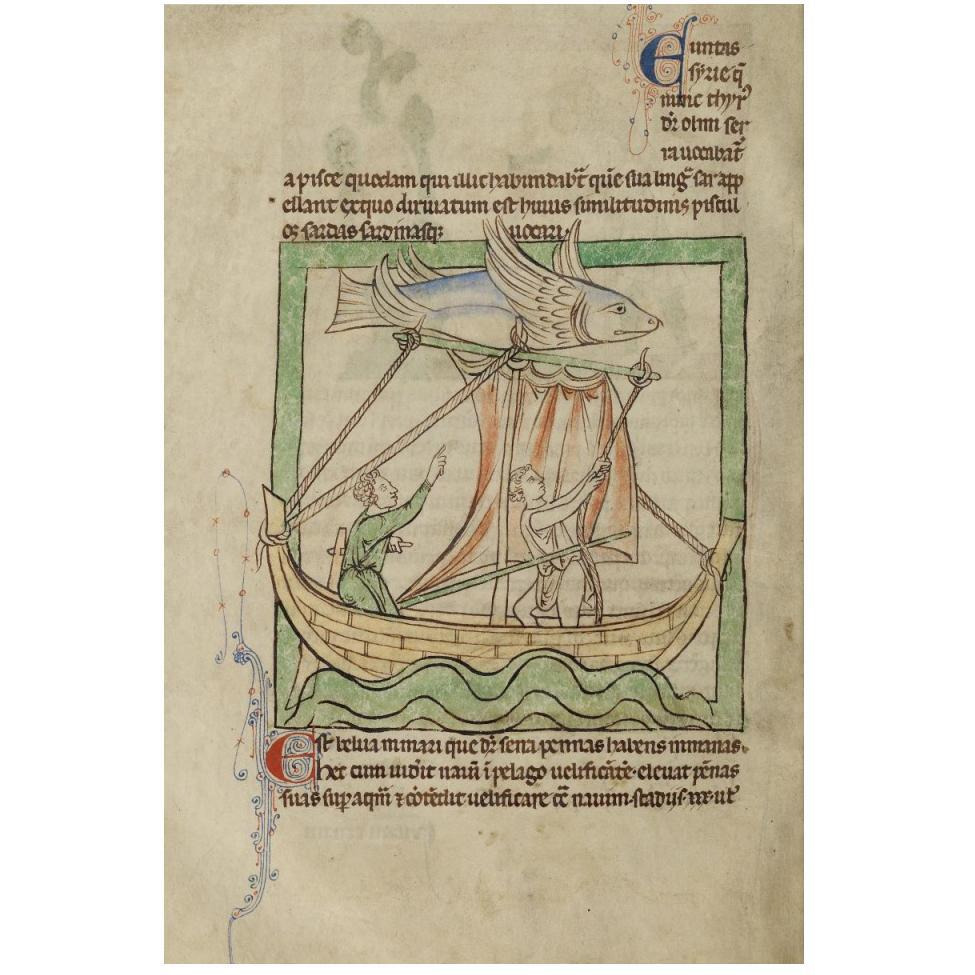 Euntas
syrie q̄
nunc thyr᷒
dr̄ olim ser
ra uocabat᷑
a pisce quodam qui illic habundabt̄ quē sua ling᷑ sar app
ellant ex quo diriuatum est huius similitudinis piscul
os sardas sardinasq; uocari·
Est belua in mari que dr̄ serra pennas habens inmanas·
hec cum uiderit nauī ī pelago uelificātē· eleuat pēnas
suas sup̄ aquā ⁊ cōtēdit uelificare cū nauim· stadiis· xxx· uł